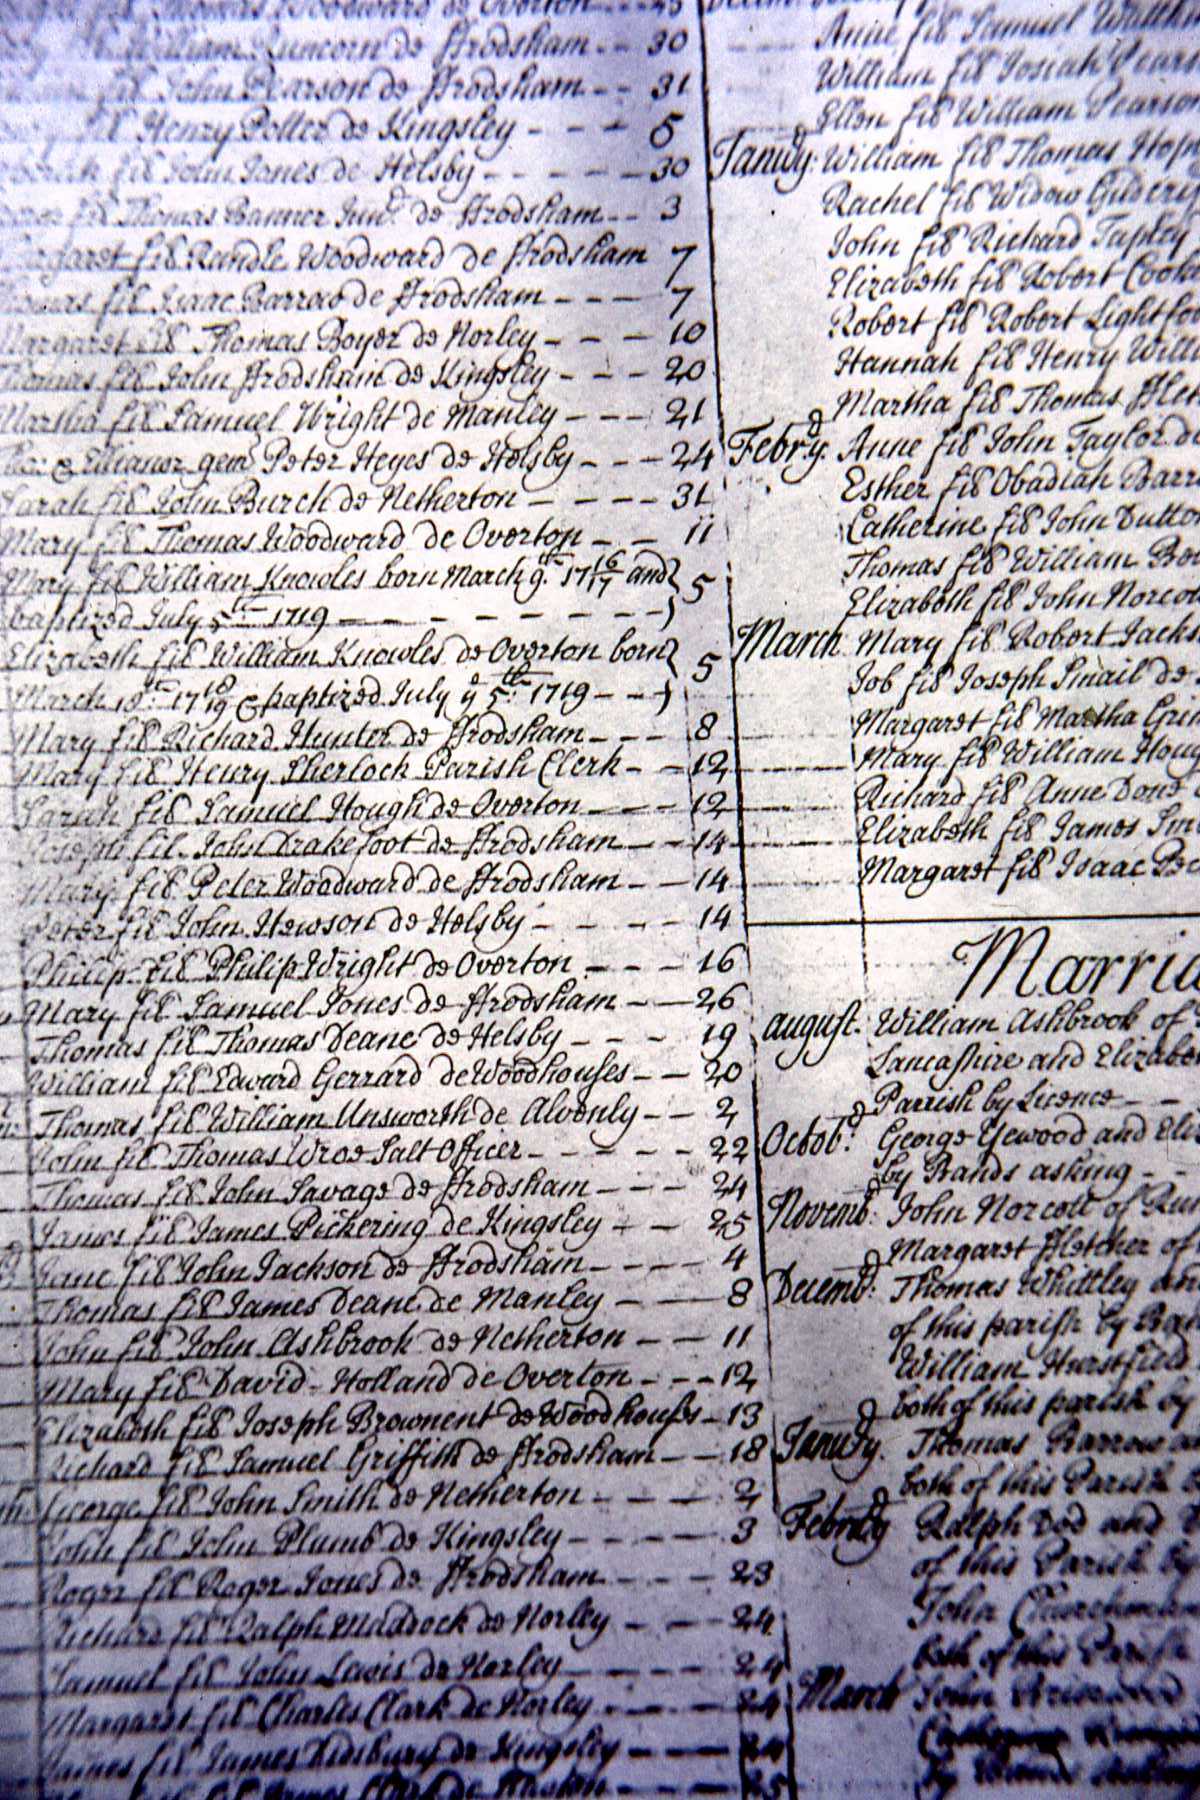 Thomas Woodward de Overton
William Runcorn de Frodsham -- 30
John Pearson de Frodsham -- 31
fil Henry Potter de Kingsley - - - 5
fil John Jones de Helsby - - - - - 30
fil Thomas Banner Jun.r de Frodsham -- 3
Margaret fil Randle Woodward de Frodsham 7
Thomas fil Isaac Barrow de Frodsham --- 7
Margaret fil Thomas Boyer de Norley - - - 10
Thomas fil John Frodsham de Kingsley - - - 20
Martha fil Samuel Wright de Manley --- 21
& Ellianer gem Peter Heyes de Helsby --- 24
Sarah fil John Burch de Netherton - - - - 31
Mary fil Thomas Woodward de Overton - - 11
Mary fil William Knowles born March 9th 17 16/17 and } 5
baptized July 5th 1719 - - - - - - - -
Elizabeth fil William Knowles de Overton born } 5
March 18th 17 18/19 & baptized July y 5th 1719 - - -
Mary fil Richard Hunter de Frodsham --- 8
Mary fil Henry Sherlock Parish Clerk - - 12
Sarah fil Samuel Hough de Overton - - - 12
Joseph fil John Drakefoot de Frodsham - - - 14
Mary fil Peter Woodward de Frodsham - - 14
Peter fil John Hewson de Helsby - - - - 14
Philip fil Philip Wright de Overton - - - 16
Mary fil Samuel Jones de Frodsham - - 26
Thomas fil Thomas Deane de Helsby - - - 19
William fil Edward Gerrard de Woodhouses - - 20
Thomas fil William Unsworth de Alvenly - - 2
John fil Thomas Wroe Salt Officer - - - - - 22
Thomas fil John Savage de Frodsham - - - 24
James fil James Pickering de Kingsley - - 25
Jane fil John Jackson de Frodsham - - - - 4
Thomas fil James Deane de Manley - - - 8
John fil John Ashbrook de Netherton - - - 11
Mary fil David Holland de Overton - - - 12
Elizabeth fil Joseph Brownent de Woodhouses - 13
Richard fil Samuel Griffith de Frodsham - - - 18
George fil John Smith de Netherton - - - - 2
John fil John Plumb de Kingsley - - - - 3
Roger fil Roger Jones de Frodsham - - - - 23
Richard fil Ralph Maddock de Norley - - - 24
Samuel fil John Lewis de Norley - - - - 24
Margaret fil Charles Clark de Norley - - - 24
James fil James Didsbury de Kingsley - - - 24
25
Anne fil Samuel
William fil Josiah
Ellen fil William Pearson
Janu'dy: William fil Thomas
Rachel fil Widow
John fil Richard Tapley
Elizabeth fil Robert
Robert fil Robert Lightfoo
Hannah fil Henry Will
Martha fil Thomas
Febr'dy. Anne fil John Taylor de
Esther fil Obadiah Barr
Catherine fil John Dutto
Thomas fil William
Elizabeth fil John Norcot
March Mary fil Robert Jacks
Job fil Joseph Smail de
Margaret fil Martha Gri
Mary fil William Houg
Richard fil Anne Done
Elizabeth fil James Smi
Margaret fil Isaac
Marria
August. William Ashbrook of
Lancashire and Elizabe
Parrish by Licence - -
Octob.d George Yewood and Eli
by Bands asking - -
Novemb.d John Norcott of Run
Margaret Fletcher of
Decemb.d Thomas Whittley an
of this parish by Ban
William Hurstfield
both of this parish by
Janu'dy. Thomas Barrow an
both of this Parish
Febru'dy Ralph Dod and
of this Parish by
John
both of this Parish
March John